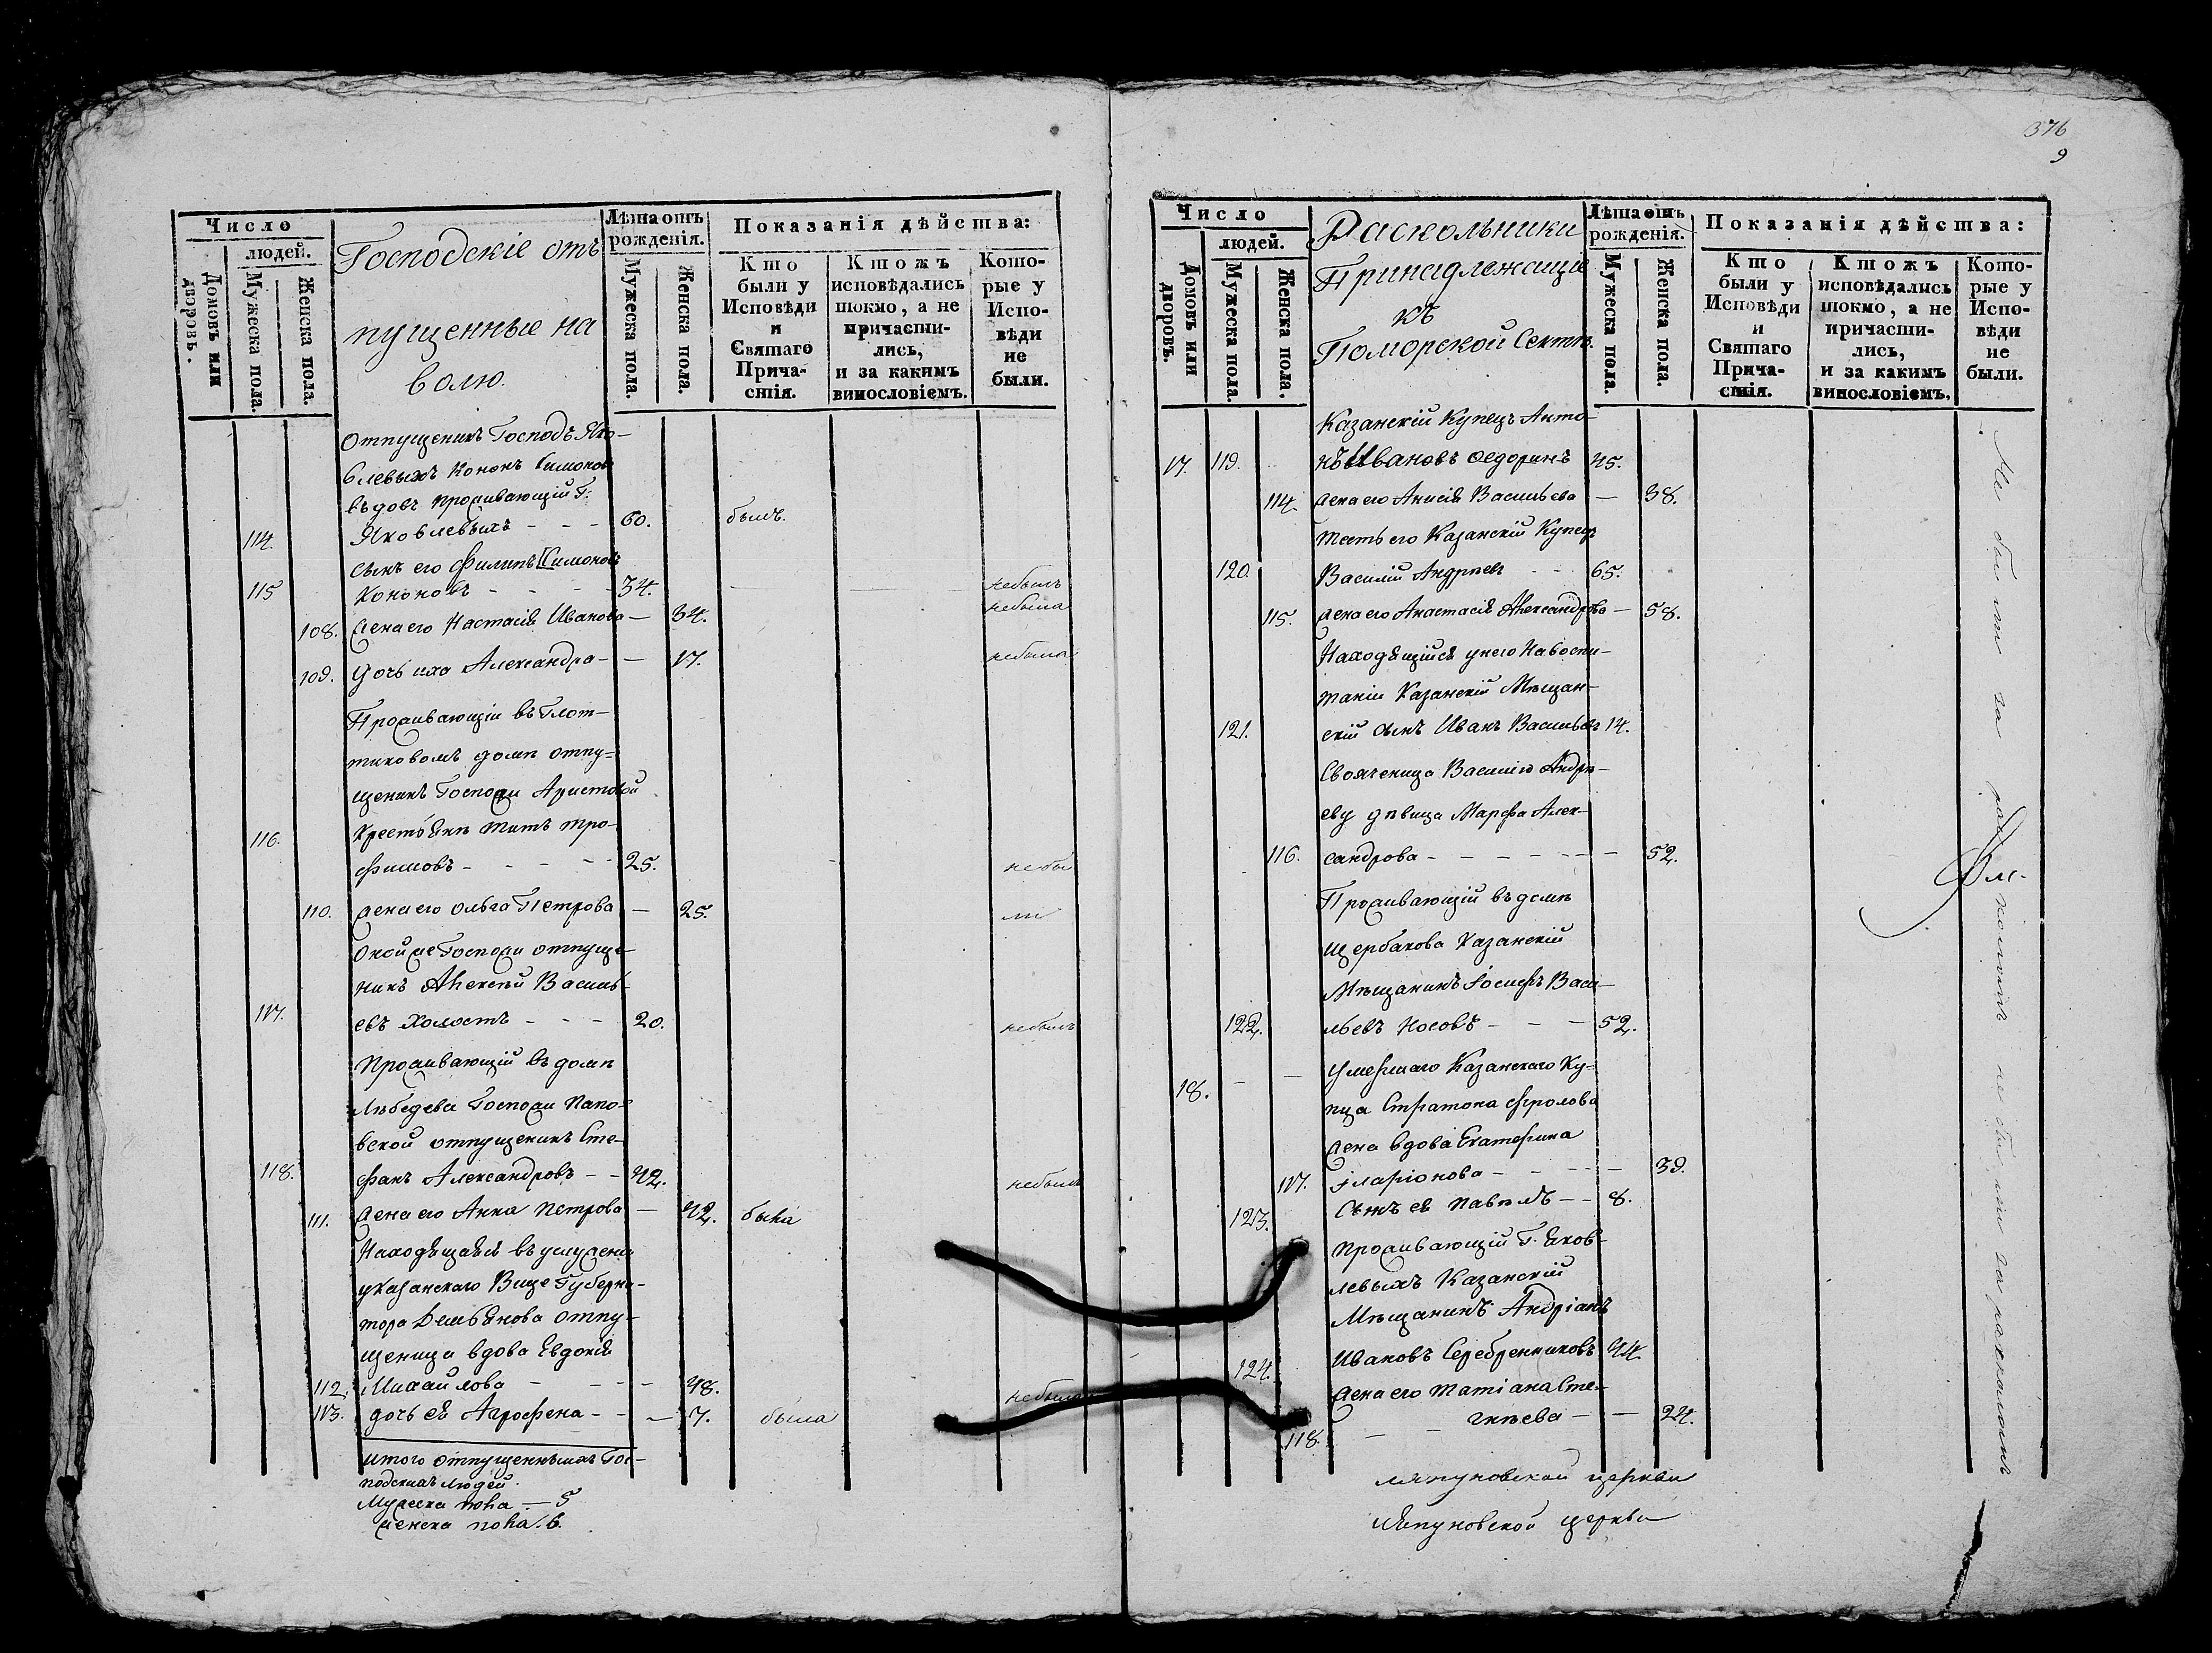 Число
людей.
Домовъ или дворовъ.
Мужеска пола.
Женска пола.
Господскіе отъ
пущенные на
волю.
Лѣта отъ рожденія.
Мужеска пола.
Женска пола.
Показанія дѣйства:
Кто были у Исповѣди и Святаго Прича-стія.
Ктожъ исповѣдались токмо, а не причасти-лись, и за какимъ винословіемъ.
Кото-рые у Испо-вѣди не были.
Отпущеникъ Господъ Яко-
влевыхъ Кононъ Симоновъ
вдовъ проживающій Г:
114. Яковлевыхъ - - - 60. былъ.
сынъ его Филипъ Симоновъ
115 Кононовъ - - - - 34. небылъ
108. Жена его Настасія Иванова — 34. небыла
109. Дочь ихъ Александра - — 17. небыла
Проживающіи въ Плот-
никовомъ домѣ отпу-
щеникъ Госпожи Аристовой
116. Крестьянъ Титъ Тро-
фимовъ - - - - - 25. небы
110. Жена его Ольга Петрова — 25. ли
Оной же Госпожи отпуще-
никъ Алексѣй Василь-
117. евъ холостъ - - - 20. небылъ
Проживающій въ домѣ
Лебедева Госпожи Напо-
вской отпущеникъ Сте-
118. фанъ Александровъ - - 42. небылъ
111. Жена его Анна Петрова — 42. была
Находящаяся въ услужени
у Казанскаго Вице Губерна-
тора отпу-
щеница вдова Евдокія
112. Михайлова - - - - 48. небыла
113. дочь ея Агрофена - - — 7. была
Итого отпущенныхъ Гос-
подскихъ людей.
Мужеска пола — 5
женска пола. 6.
376
9
Число
людей.
Домовъ или дворовъ.
Мужеска пола.
Женска пола.
Раскольники
Принадлежащіе
къ
Поморской Сектѣ.
Лѣта отъ рожденія.
Мужеска пола.
Женска пола.
Показанія дѣйства:
Кто были у Исповѣди и Святаго Прича-стія.
Ктожъ исповѣдались токмо, а не причасти-лись, и за какимъ винословіемъ.
Кото-рые у Испо-вѣди не были.
Казанскій Купецъ Анто-
17. 119. нъ Ивановъ Федоринъ 45.
114. жена его Анисія Васильева — 38.
Тесть его Казанскій Купецъ
120. Василій Андреевъ - - 65.
115. жена его Анастасія Александрова — 58.
Находящійся у него на воспи-
таніи Казанскій Мѣщан-
121. скій сынъ Иванъ Васильевъ 14.
Свояченица Василію Андре-
еву дѣвица Марфа Алек-
116. сандрова - - - - - - — 52.
Проживающій въ домѣ
Щербакова Казанскій
Мѣщанинъ Іосифъ Васи-
122. льевъ Носовъ - - - 52.
18. - - Умершаго Казанскаго Ку-
пца Стратона Фролова
жена вдова Екатерина
117. Іларіонова - - - - — 39.
123. Сынъ ея Павелъ - - 8.
Проживающій Г. Яков-
левыхъ Казанскій
Мѣщанинъ Андріанъ
124. Ивановъ Серебренниковъ 44.
жена его Татіана Сте-
118. - - гнѣева - — 24.
церкви
церкви